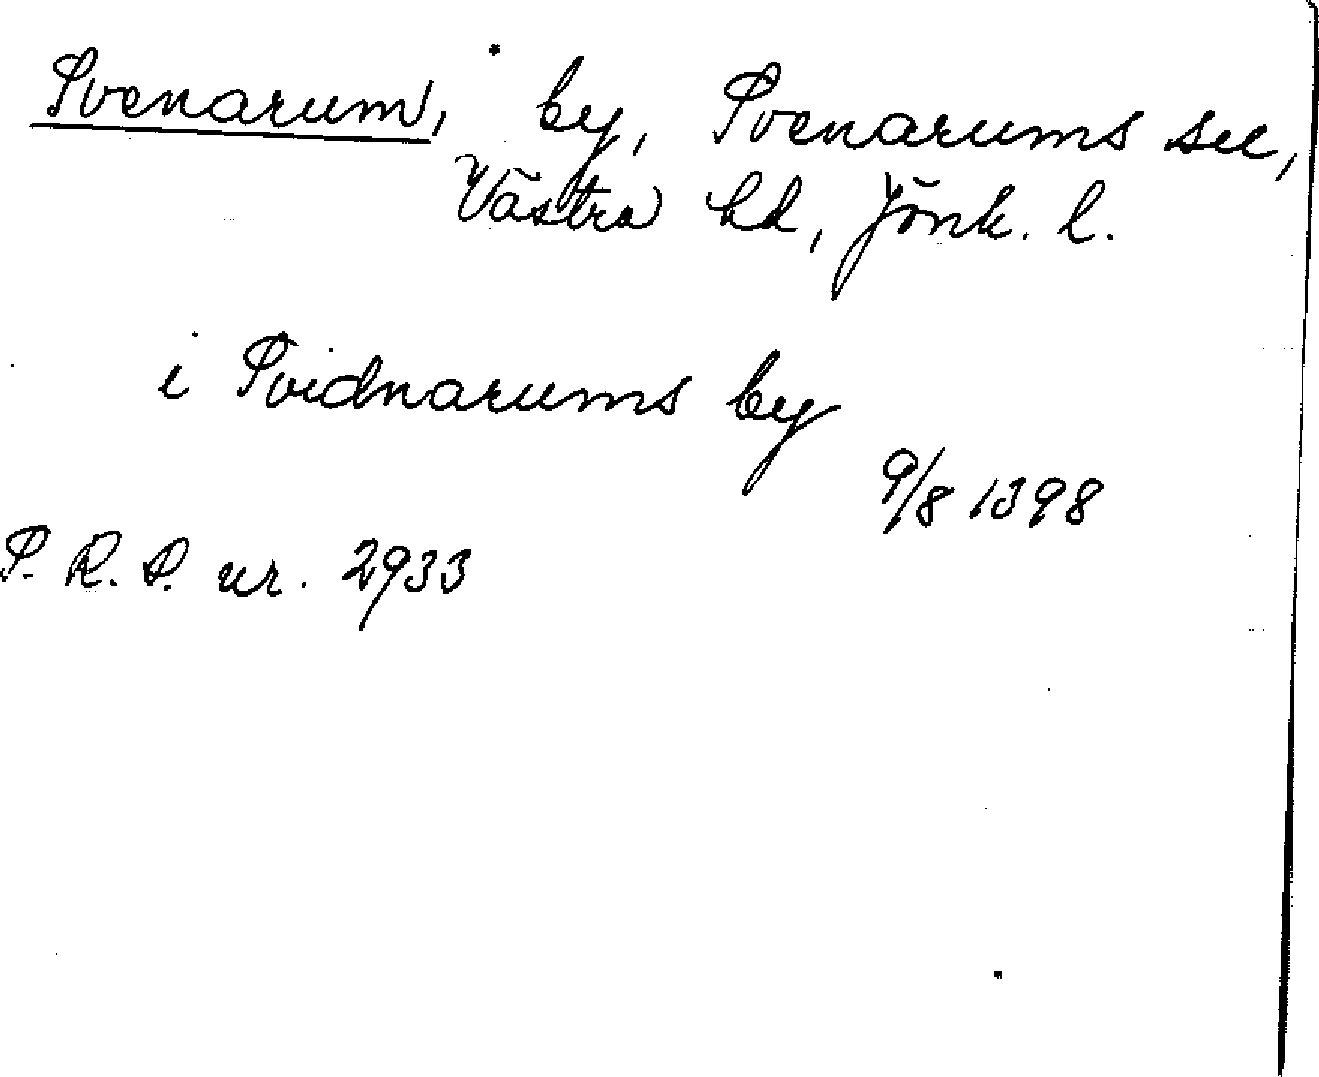 Svenarum, by, Svenarums sn,
Västra hd, Jönk. l.
i Svidnarums by
9/8 1398
S. R. P. nr. 2933